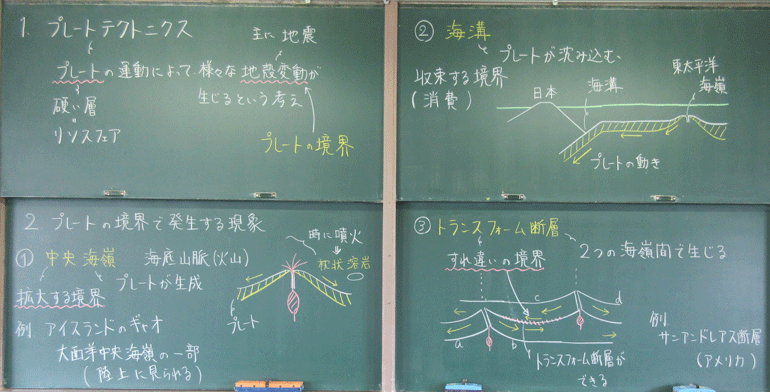 1. プレートテクトニクス
主に 地震
プレートの運動によって様々な地殻変動が
生じるという考え
硬い層
リソスフェア
プレートの境界
2 プレートの境界で発生する現象
① 中央 海嶺 海底山脈(火山)
プレートが生成
拡大する境界
例 アイスランドのギャオ
大西洋中央海嶺の一部
(陸上に見られる)
時に噴火
枕状溶岩
プレート
② 海溝
プレートが沈み込む
収束する境界
(消費)
日本
海溝
東太平洋
海嶺
プレートの動き
③ トランスフォーム断層
2つの海嶺間で生じる
すれ違いの境界
a
b
c
d
トランスフォーム断層が
できる
例
サンアンドレアス断層
(アメリカ)